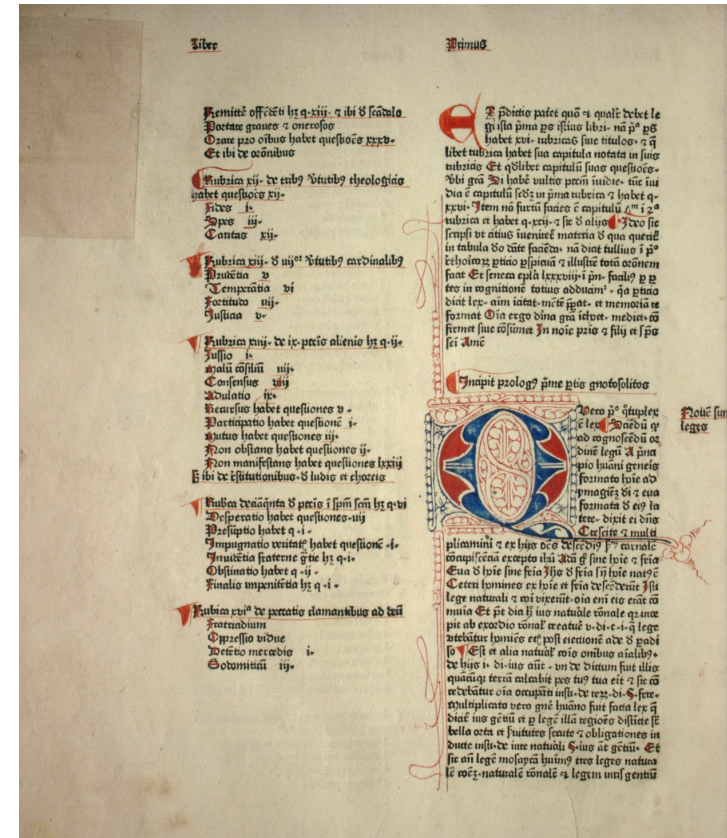 Liber
Primus
Remittē offēdēti hꝫ q·xiij· ⁊ ibi đ scādalo
Portare graues ⁊ onerosos
Orare pro oībus habet questiōes xxxv·
Et ibi de orōnibus
Rubrica xij· de tribꝰ v̄tutibꝰ theologicis
habet questiōes xij·
Fides i·
Spes iij·
Caritas xij·
Rubrica xiij· đ uijᵒʳ v̄tutibꝰ cardinalibꝰ
Prudētia v
Temperātia vi
Fortitudo uij·
Iusticia v·
Rubrica xiiij· de ix· pctīs alienis hꝫ q·ij·
Iussio i·
Malū cōsiliū iiij·
Consensus viij
Adulatio ix·
Recursus habet questiones v·
Participatio habet questionē i·
Mutus habet questiones iij·
Non obstans habet questiones ij·
Non manifestans habet questiones lxxiij
ꝫ ibi de r̄stitutionibus· đ ludis et choreis
đ pctīs ī spm̄ scm̄ hꝫ q·vi
Desperatio habet questiones·uij
Presūptio habet q·i·
Impugnatio veritatꝭ habet questionē ·i·
Inuidētia fraterne gr̄tie hꝫ q·i·
Obstinatio habet q·ij·
Finalis impenitētia hꝫ q·i·
Rubica xviᵃ de peccatis clamantibus ad deū
Fratricidium
Oppressio vidue
Detētio mercedis i·
Sodomiticū iij·
Ex p̄dictis patet quō ⁊ qualr̄ debet le
gi ista pīma ps̄ istius libri· nā pᵒ ps̄
habet xvi· rubricas siue titulos· ⁊ q̄
libet rubrica habet sua capitula notata in suis
rubricis Et qđlibet capitulū suas questiōes·
Vbi grā Si habē vultis pctm̄ īuidie· tūc īui
dia ē capitulū scđꝫ in pīma rubrica ⁊ habet q·
xxvi· Item nā furiū facies ē capitulū ī 2ᵃ
rubrica et habet q·xcij· ⁊ sic đ alijs Ideo sic
scripsi vt citius iueniret̄ materia đ qua querit̄
in tabula đo dāte faciēda· nā dicit tullius ī pᵒ
rethoricoꝝ ꝑticio ꝑspicuā ⁊ illustrē totā orōnem
facit Et seneca epl̄a lxxxviij· ī pn̄· faciliꝰ ꝑ ꝑ
tes in cognitionē totius adducim̄· q̄a ꝑticio
dicit lex· aīm icitat· mētē p̄ꝑat· et memoriā re
format Oīa ergo dina grā īchoet· mediet· cō
firmet siue cōsūmet In noīe pris̄ ⁊ filij et sp̄s
sc̄i Amē
Incipit prologꝰ pīme ꝑtis gnotosolitos
Vero pᵒ q̄tuplex
ē lex Sciēdū ꝙ
ad cognoscēdū or
dinē legū A pīnci
pio huāni gēneis
formato hoīe ad
ymaginē đi ⁊ eua
formata đ eiꝰ la
tere· dixit eis dn̄s
Crescite ⁊ multi
Nouē sunt
leges
plicamini ⁊ ex hijs oēs descēdiꝰ ꝑ carnalē
cōcupiscēciā excepto ihū Adā eī sine hoīe ⁊ feīa
Eua đ hoīe sine feīa Ihs̄ đ feīa sn̄ hoīe natꝰ ē
Ceteri homines ex hoīe et feīa descēderūt Isti
lege naturali ⁊ coī vixerūt· oīa eni eis erāt cō
munia Et p̄t dici hꝫ ius natuāle rōnale qꝛ ince
pit ab exordio rōnal creatuē v·di·c·i·q̄ lege
vtebātur homīes etꝫ post eiectionē ade đ padi
so Est et alia natural̄ coīs omībus aīalibꝰ·
de hijs i· di·ius aūt· vn̄ de dictum fuit illis
quācūqꝫ terrā calcabit pes tuꝰ tua eit ⁊ sic cō
cedebātur oīa occupāti insti·de reꝝ·di·§·fere·
Multiplicato vero gn̄ē huāno fuit facta lex q̄
dicit̄ ius gētiū et ꝑ legē illā regiōes distīcte st̄
bella orta et s̄uitutes secute ⁊ obligationes in
ducte insti·de iure naturali §·ius āt gētiū· Et
sic añ legē mosaycā huimꝰ tres leges natura
lē coēꝫ·naturalē rōnalē ⁊ legem iuris gentiū